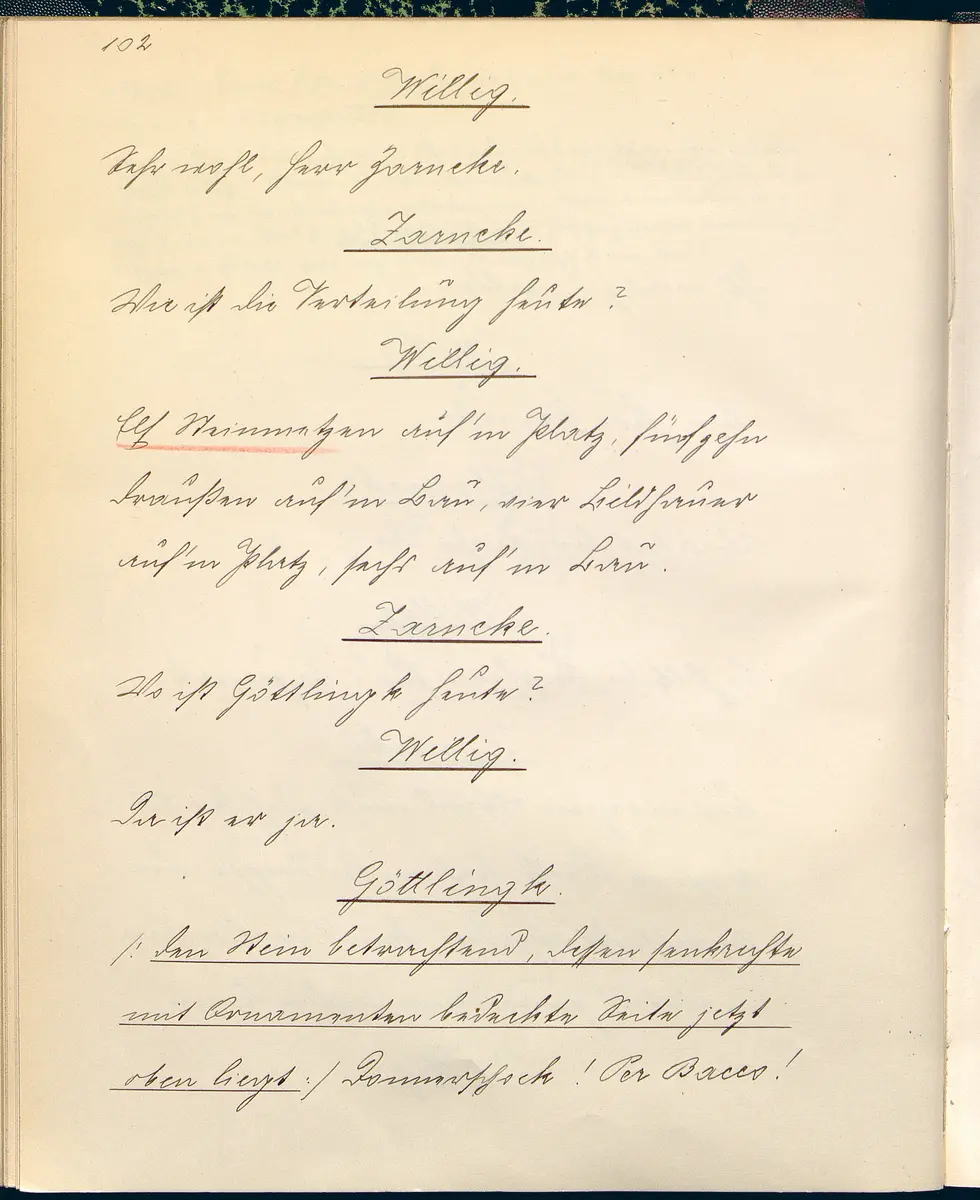 102
Willig.
Sehr wohl, Herr Zarncke.
Zarncke.
Wie ist die Verteilung heute?
Willig.
Elf Steinmetzen auf'm Platz, fünfzehn
draußen auf'm Bau, vier Bildhauer
auf'm Platz, sechs auf'm Bau.
Zarncke.
Wo ist Göttlingk heute?
Willig.
Da ist er ja.
Göttlingk.
/: den Stein betrachtend, dessen senkrechte
mit Ornamenten bedeckte Seite jetzt
oben liegt :/ Donnerschock! Per Bacco!